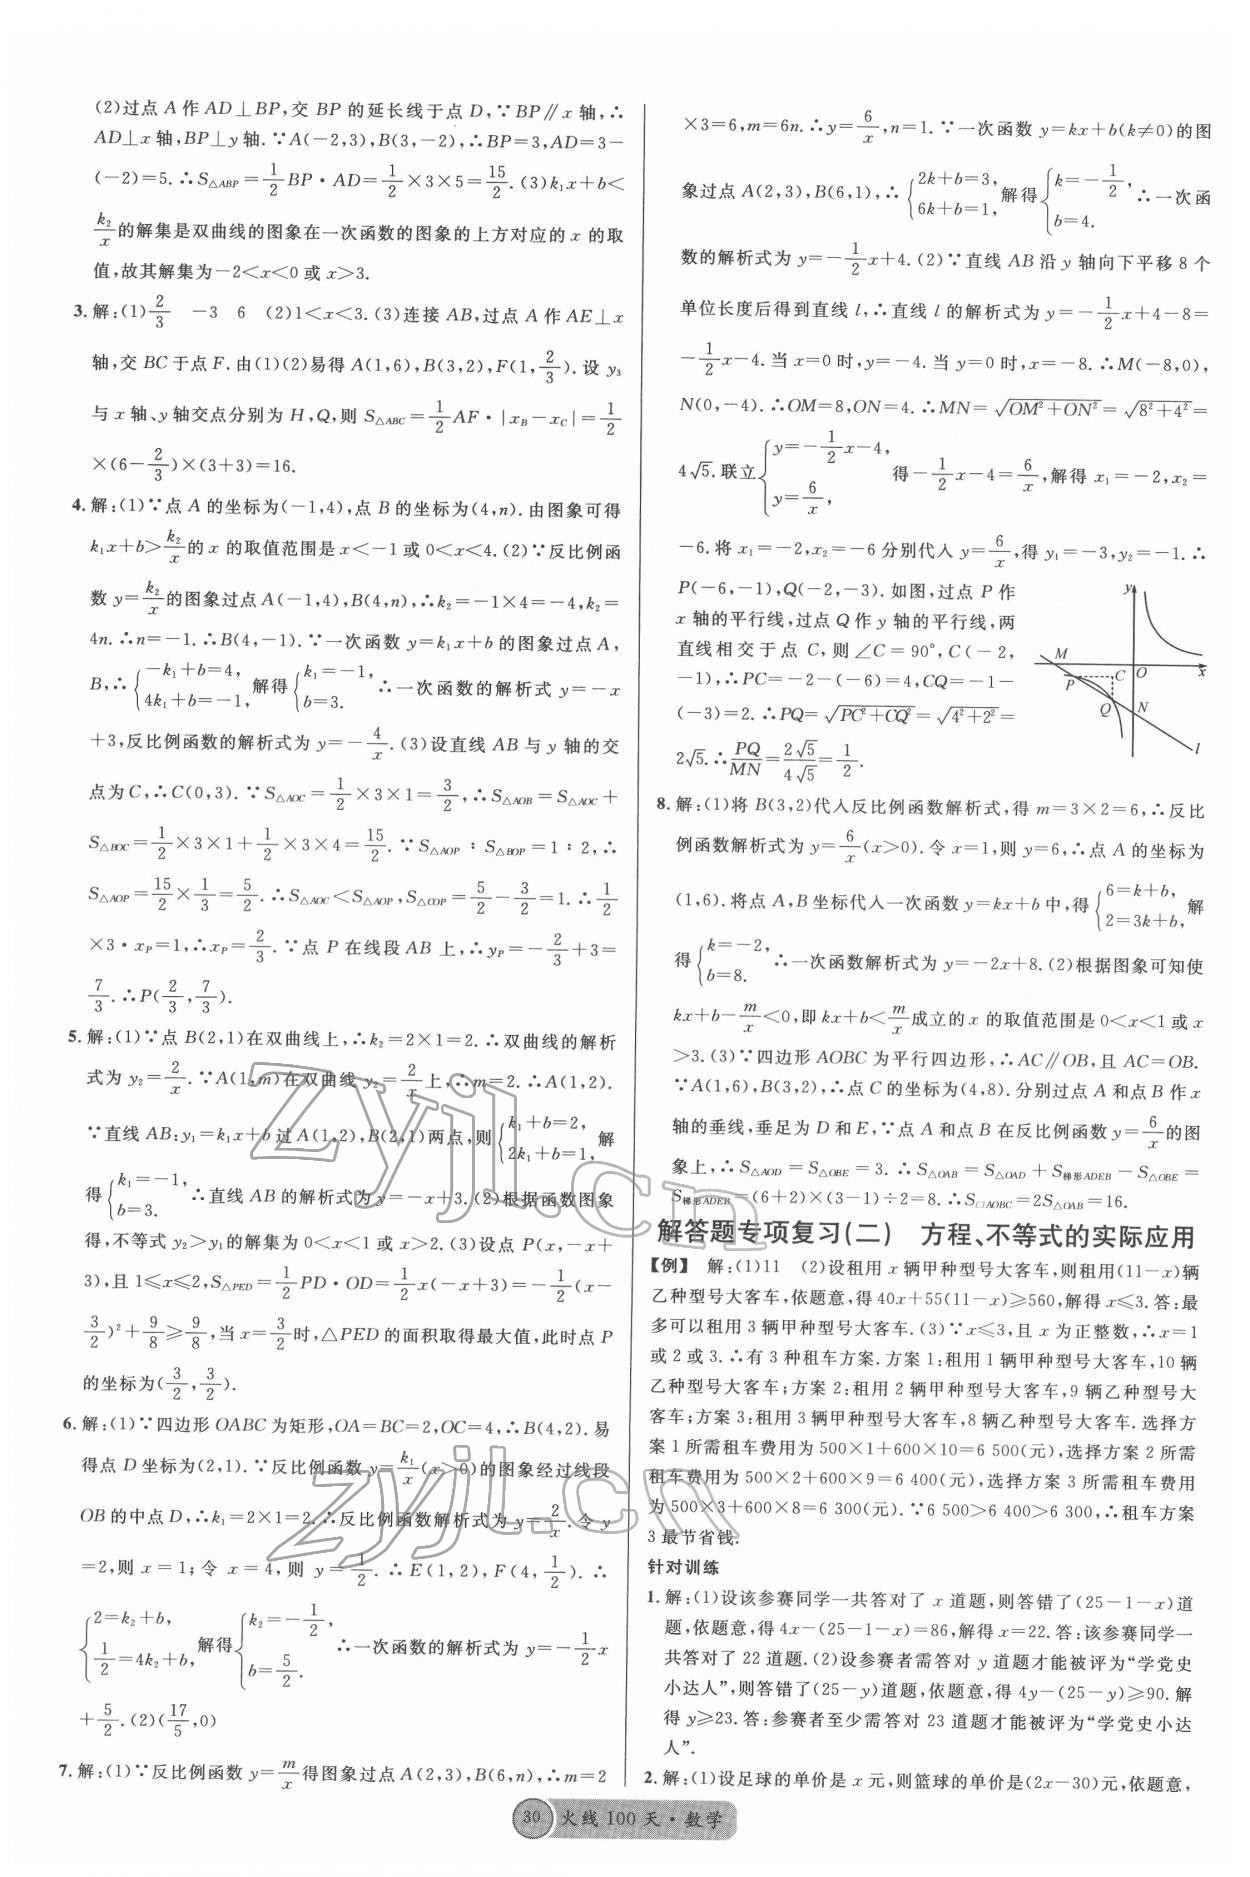 (2)过点 A 作 AD⊥BP,交 BP 的延长线于点 D,∵BP∥x 轴,∴
AD⊥x 轴,BP⊥y 轴.∵A(-2,3),B(3,-2),∴BP=3,AD=3-
(-2)=5.∴S△ABP=1/2BP·AD=1/2×3×5=15/2.(3)k₁x+b<
k₂/x的解集是双曲线的图象在一次函数的图象的上方对应的 x 的取
值,故其解集为-2<x<0 或 x>3.
3.解:(1)2/3 -3 6 (2)1<x<3.(3)连接 AB,过点 A 作 AE⊥x
轴,交 BC于点 F.由(1)(2)易得 A(1,6),B(3,2),F(1,2/3).设 y₃
与 x 轴、y 轴交点分别为 H,Q,则 S△ABC=1/2AF·|xB-xC|=1/2
×(6-2/3)×(3+3)=16.
4.解:(1)∵点 A 的坐标为(-1,4),点 B 的坐标为(4,n).由图象可得
k₁x+b>k₂/x的 x 的取值范围是 x<-1 或 0<x<4.(2)∵反比例函
数 y=k₂/x的图象过点 A(-1,4),B(4,n),∴k₂=-1×4=-4,k₂=
4n.∴n=-1.∴B(4,-1).∵一次函数 y=k₁x+b 的图象过点 A,
B,∴{-k₁+b=4, 4k₁+b=-1, 解得{k₁=-1, b=3. ∴一次函数的解析式 y=-x
+3,反比例函数的解析式为 y=-4/x.(3)设直线 AB 与 y 轴的交
点为 C,∴C(0,3).∵S△AOC=1/2×3×1=3/2,∴S△AOB=S△AOC+
S△BOC=1/2×3×1+1/2×3×4=15/2.∵S△AOP∶S△BOP=1∶2,∴
S△AOP=15/2×1/3=5/2.∴S△AOC<S△AOP,S△COP=5/2-3/2=1.∴1/2
×3·xP=1,∴xP=2/3.∵点 P 在线段 AB 上,∴yP=-2/3+3=
7/3.∴P(2/3,7/3).
5.解:(1)∵点 B(2,1)在双曲线上,∴k₂=2×1=2.∴双曲线的解析
式为 y₂=2/x.∵A(1,m)在双曲线 y₂=2/x上,∴m=2.∴A(1,2).
∵直线 AB:y₁=k₁x+b 过 A(1,2),B(2,1)两点,则{k₁+b=2, 2k₁+b=1, 解
得{k₁=-1, b=3. ∴直线 AB 的解析式为 y=-x+3.(2)根据函数图象
得,不等式 y₂>y₁的解集为 0<x<1 或 x>2.(3)设点 P(x,-x+
3),且 1≤x≤2,S△PED=1/2PD·OD=1/2x(-x+3)=-1/2(x-
3/2)²+9/8≥9/8,当 x=3/2时,△PED 的面积取得最大值,此时点 P
的坐标为(3/2,3/2).
6.解:(1)∵四边形 OABC 为矩形,OA=BC=2,OC=4,∴B(4,2).易
得点 D 坐标为(2,1).∵反比例函数 y=k₁/x(x>0)的图象经过线段
OB 的中点 D,∴k₁=2×1=2.∴反比例函数解析式为 y=2/x.令 y
=2,则 x=1;令 x=4,则 y=1/2.∴E(1,2),F(4,1/2).∴
{2=k₂+b, 1/2=4k₂+b, 解得{k₂=-1/2, b=5/2. ∴一次函数的解析式为 y=-1/2x
+5/2.(2)(17/5,0)
7.解:(1)∵反比例函数 y=m/x得图象过点 A(2,3),B(6,n),∴m=2
×3=6,m=6n.∴y=6/x,n=1.∵一次函数 y=kx+b(k≠0)的图
象过点 A(2,3),B(6,1),∴{2k+b=3, 6k+b=1, 解得{k=-1/2, b=4. ∴一次函
数的解析式为 y=-1/2x+4.(2)∵直线 AB 沿 y 轴向下平移 8 个
单位长度后得到直线 l,∴直线 l 的解析式为 y=-1/2x+4-8=
-1/2x-4.当 x=0 时,y=-4.当 y=0 时,x=-8.∴M(-8,0),
N(0,-4).∴OM=8,ON=4.∴MN=√(OM²+ON²)=√(8²+4²)=
4√5.联立{y=-1/2x-4, y=6/x, 得-1/2x-4=6/x,解得 x₁=-2,x₂=
-6.将 x₁=-2,x₂=-6 分别代入 y=6/x,得 y₁=-3,y₂=-1.∴
P(-6,-1),Q(-2,-3).如图,过点 P 作
x 轴的平行线,过点 Q 作 y 轴的平行线,两
直线相交于点 C,则∠C=90°,C(-2,
-1),∴PC=-2-(-6)=4,CQ=-1-
(-3)=2.∴PQ=√(PC²+CQ²)=√(4²+2²)=
2√5.∴PQ/MN=2√5/4√5=1/2.
y
M
P
C
O
x
Q
N
l
8.解:(1)将 B(3,2)代入反比例函数解析式,得 m=3×2=6,∴反比
例函数解析式为 y=6/x(x>0).令 x=1,则 y=6,∴点 A 的坐标为
(1,6).将点 A,B 坐标代入一次函数 y=kx+b 中,得{6=k+b, 2=3k+b, 解
得{k=-2, b=8. ∴一次函数解析式为 y=-2x+8.(2)根据图象可知使
kx+b-m/x<0,即 kx+b<m/x成立的 x 的取值范围是 0<x<1 或 x
>3.(3)∵四边形 AOBC 为平行四边形,∴AC∥OB,且 AC=OB.
∵A(1,6),B(3,2),∴点 C 的坐标为(4,8).分别过点 A 和点 B 作 x
轴的垂线,垂足为 D 和 E,∵点 A 和点 B 在反比例函数 y=6/x的图
象上,∴S△AOD=S△OBE=3.∴S△OAB=S△OAD+S梯形ADEB-S△OBE=
S梯形ADEB=(6+2)×(3-1)÷2=8.∴S□AOBC=2S△OAB=16.
解答题专项复习(二) 方程、不等式的实际应用
【例】 解:(1)11 (2)设租用 x 辆甲种型号大客车,则租用(11-x)辆
乙种型号大客车,依题意,得 40x+55(11-x)≥560,解得 x≤3.答:最
多可以租用 3 辆甲种型号大客车.(3)∵x≤3,且 x 为正整数,∴x=1
或 2 或 3.∴有 3 种租车方案.方案 1:租用 1 辆甲种型号大客车,10 辆
乙种型号大客车;方案 2:租用 2 辆甲种型号大客车,9 辆乙种型号大
客车;方案 3:租用 3 辆甲种型号大客车,8 辆乙种型号大客车.选择方
案 1 所需租车费用为 500×1+600×10=6 500(元),选择方案 2 所需
租车费用为 500×2+600×9=6 400(元),选择方案 3 所需租车费用
为 500×3+600×8=6 300(元).∵6 500>6 400>6 300,∴租车方案
3 最节省钱.
针对训练
1.解:(1)设该参赛同学一共答对了 x 道题,则答错了(25-1-x)道
题,依题意,得 4x-(25-1-x)=86,解得 x=22.答:该参赛同学一
共答对了 22 道题.(2)设参赛者需答对 y 道题才能被评为“学党史
小达人”,则答错了(25-y)道题,依题意,得 4y-(25-y)≥90.解
得 y≥23.答:参赛者至少需答对 23 道题才能被评为“学党史小达
人”.
2.解:(1)设足球的单价是 x 元,则篮球的单价是(2x-30)元,依题意,
30 火线 100 天·数学
zyjl.cn
zyjl.cn